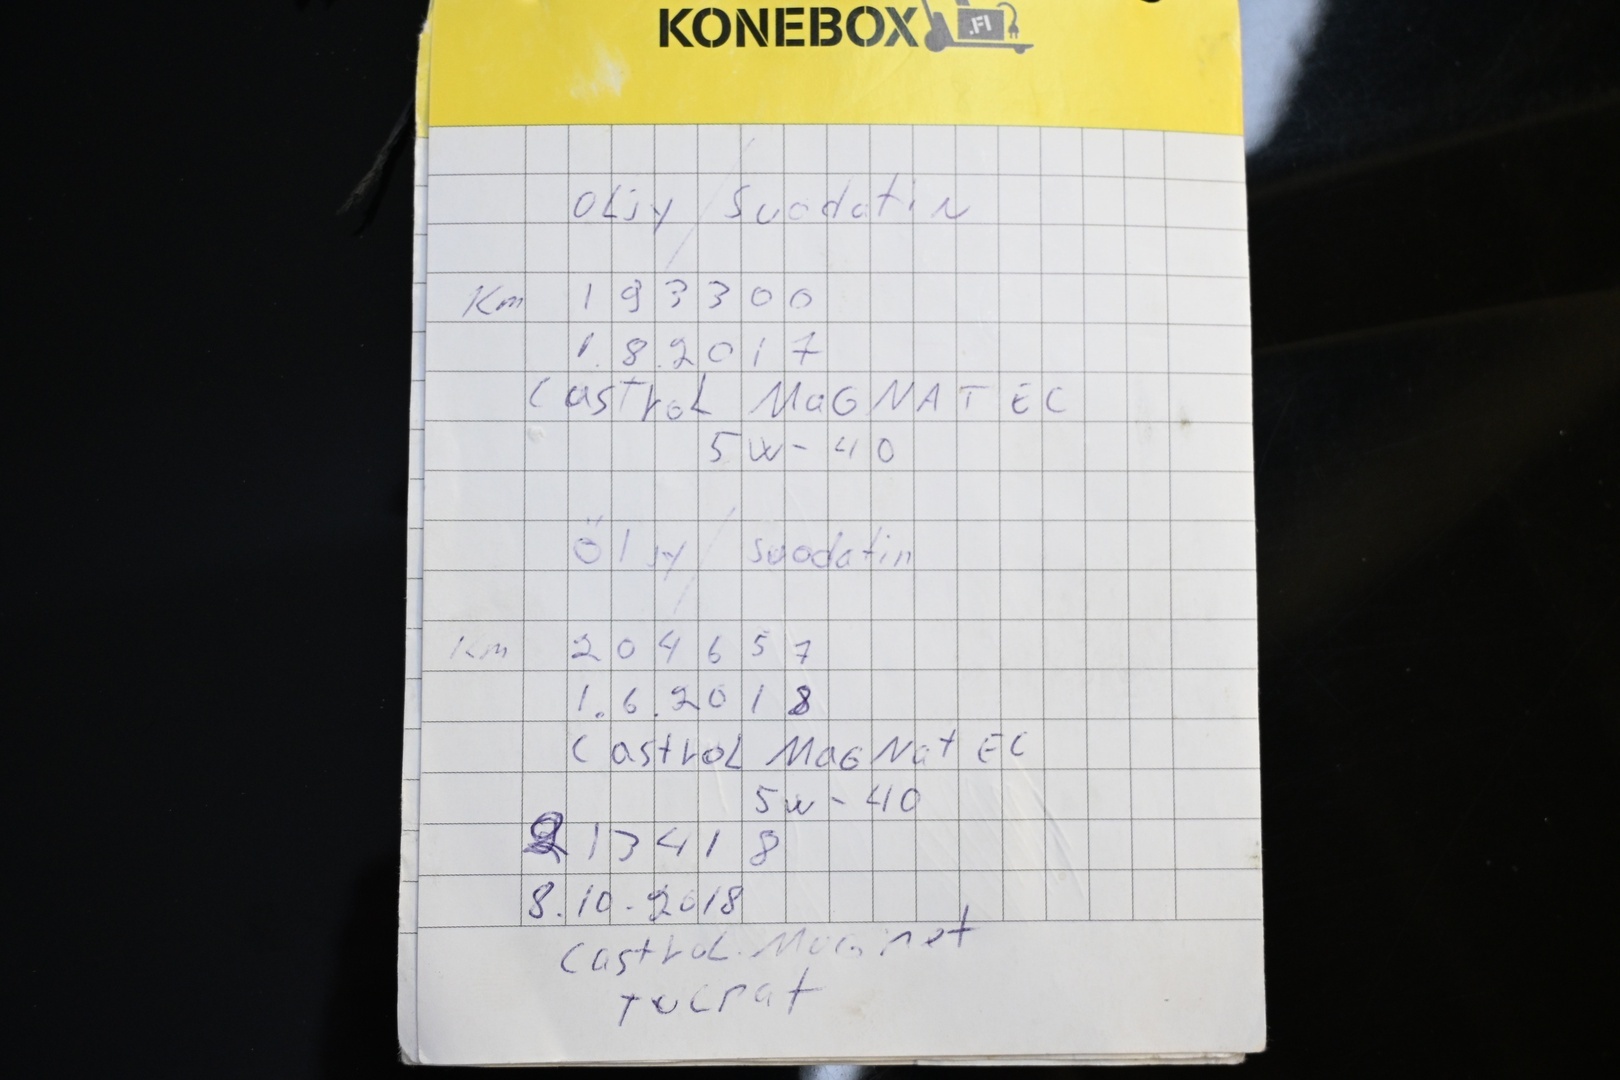 KONEBOX.FI
OLjy / Suodatin
Km 193300
1.8.2017
CastroL MaGNATEC
5w-40
Öljy / suodatin
Km 204657
1.6.2018
CastroL MaGNatEC
5w-40
213418
8.10-2018
CastroL